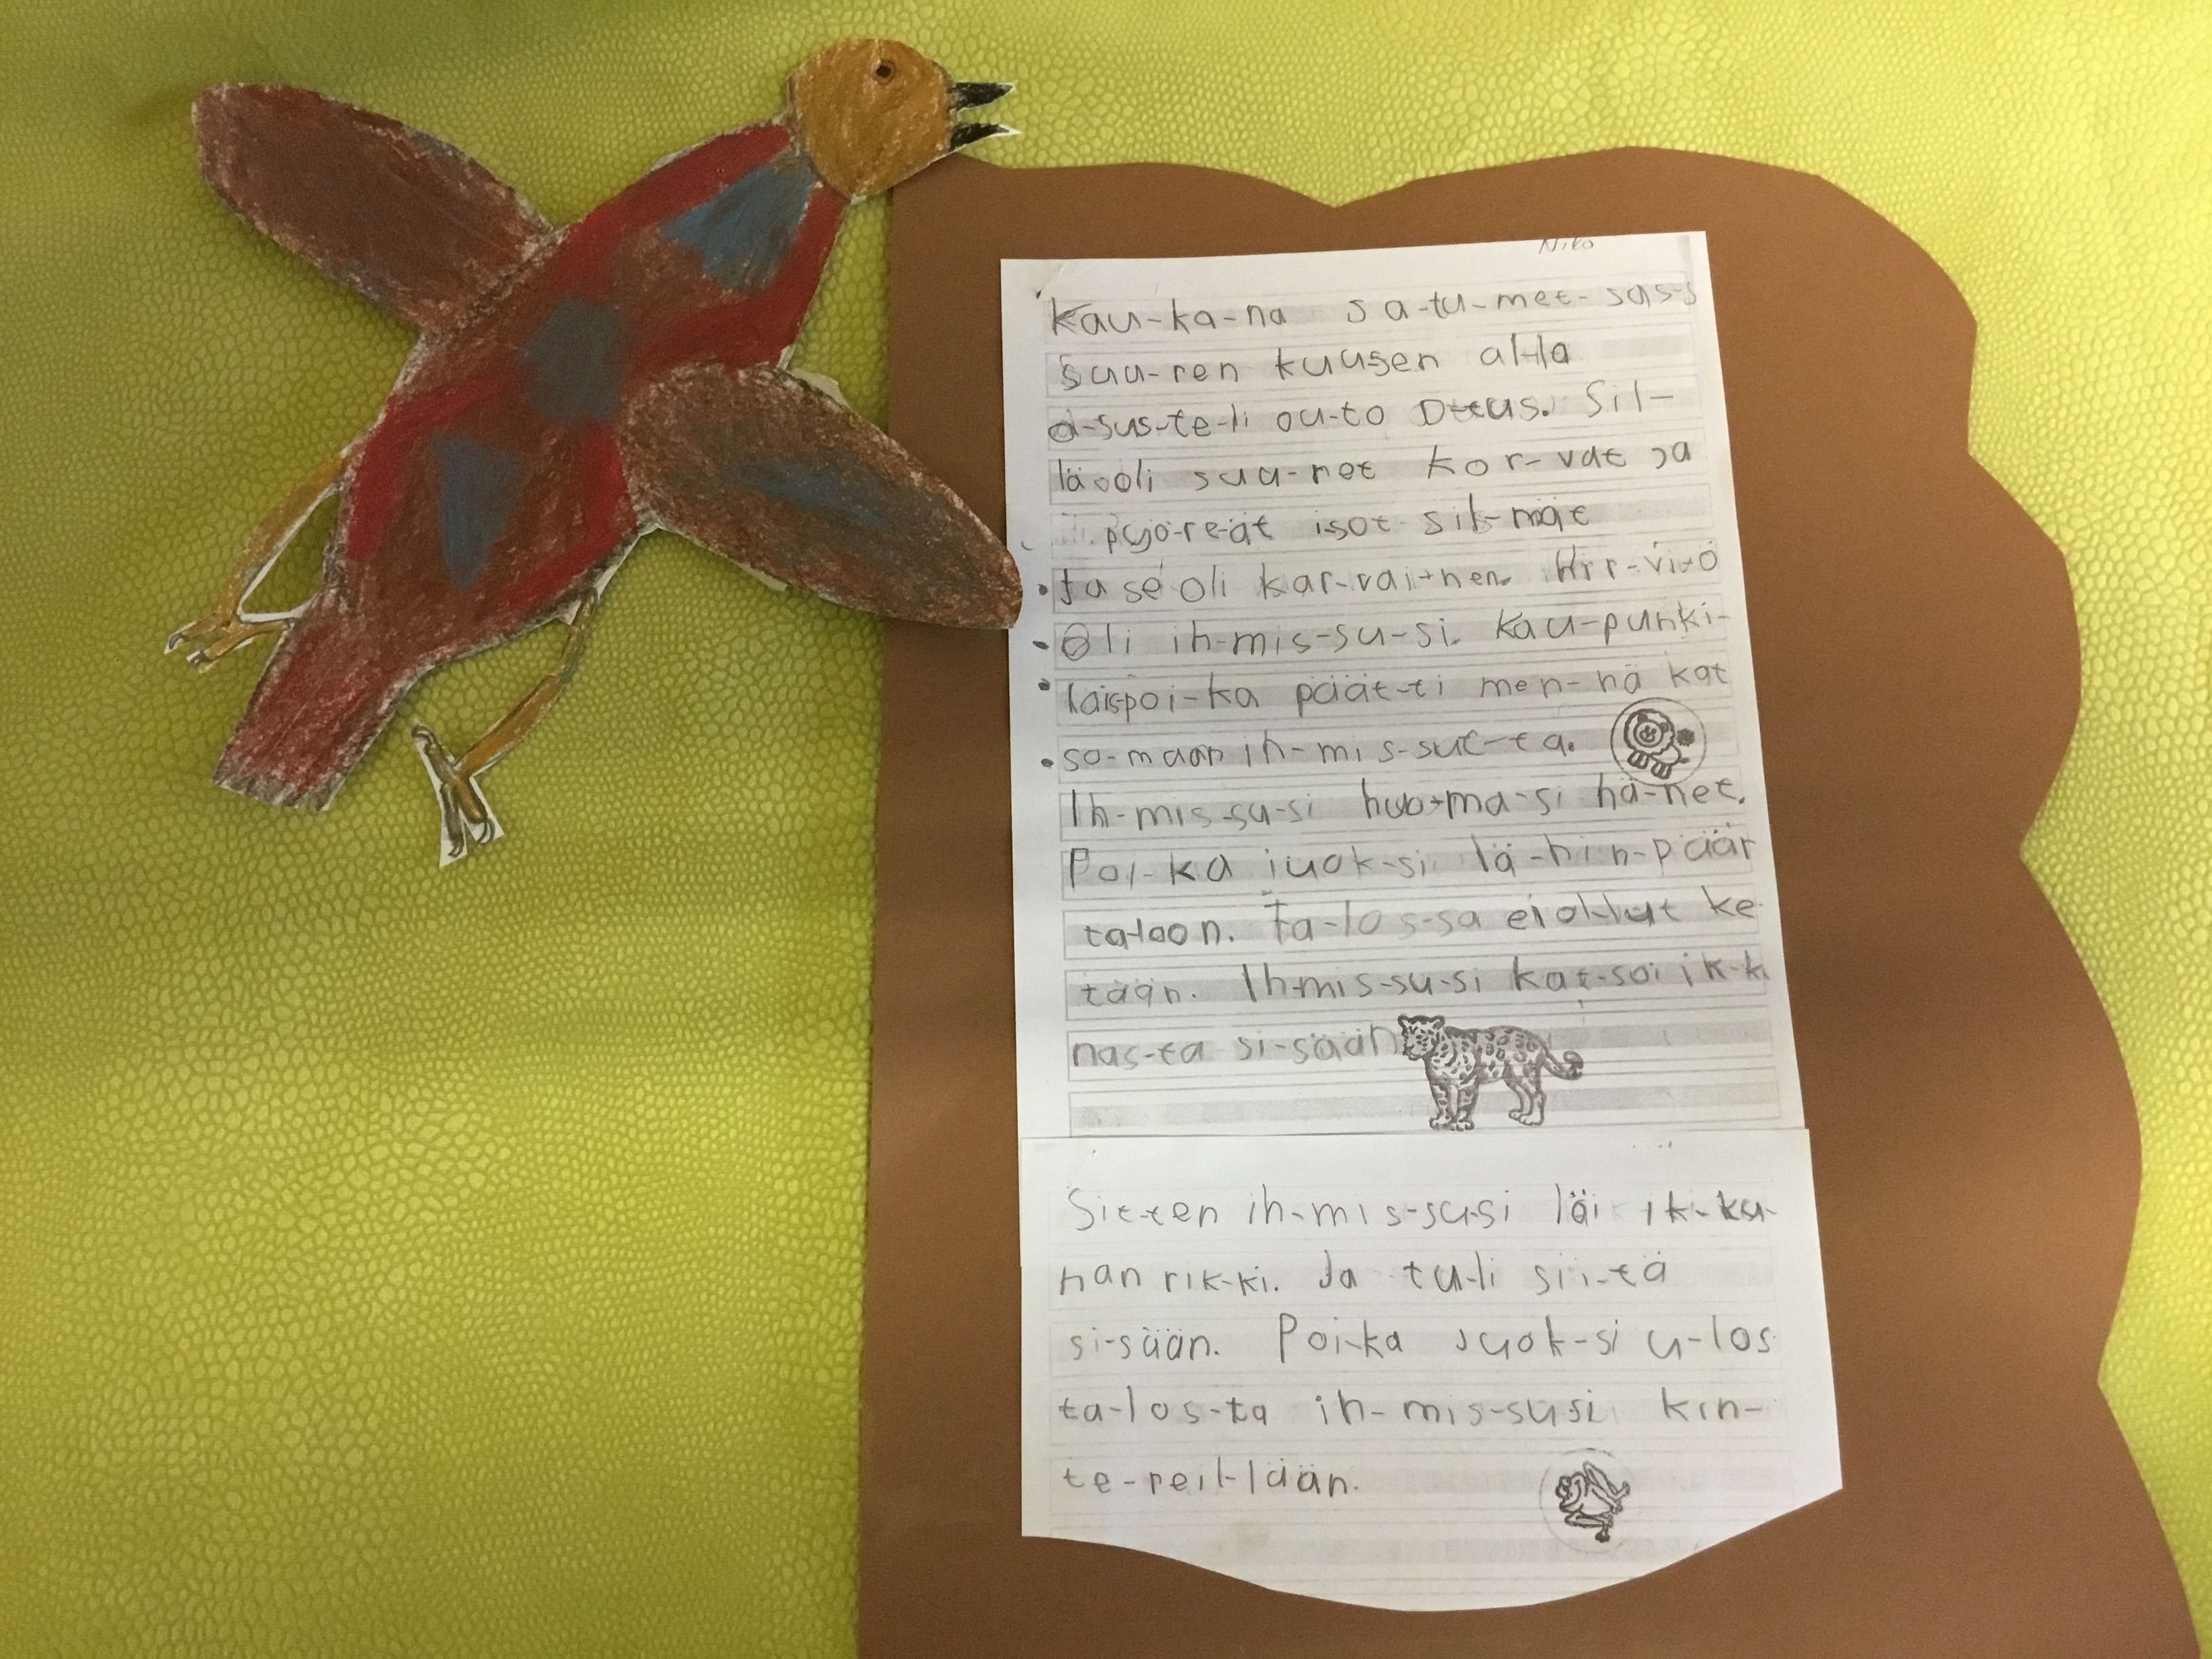 Niko
Kau-ka-na sa-tu-met-säs-s
Suu-ren kuu-sen al-la
a-sus-te-li ou-to O-tus. Sil-
lä oli suu-ret kor-vat ja
pyö-re-ät isot sil-mät
Ja se oli kar-vai-nen. Hir-vi-ö
Oli ih-mis-su-si. Kau-punki-
laispoi-ka päät-ti men-nä kat
so-maan ih-mis-sut-ta.
Ih-mis-su-si huo-ma-si hä-net.
Poi-ka juok-si lä-hin-pään
ta-loon. Ta-los-sa ei ol-lut ke
tään. Ih-mis-su-si kat-soi ik-k
nas-ta si-sään
Sit-ten ih-mis-su-si löi ik-ku-
nan rik-ki. Ja tu-li sii-tä
si-sään. Poi-ka juok-si u-los
ta-los-ta ih-mis-susi kin-
te-reil-lään.